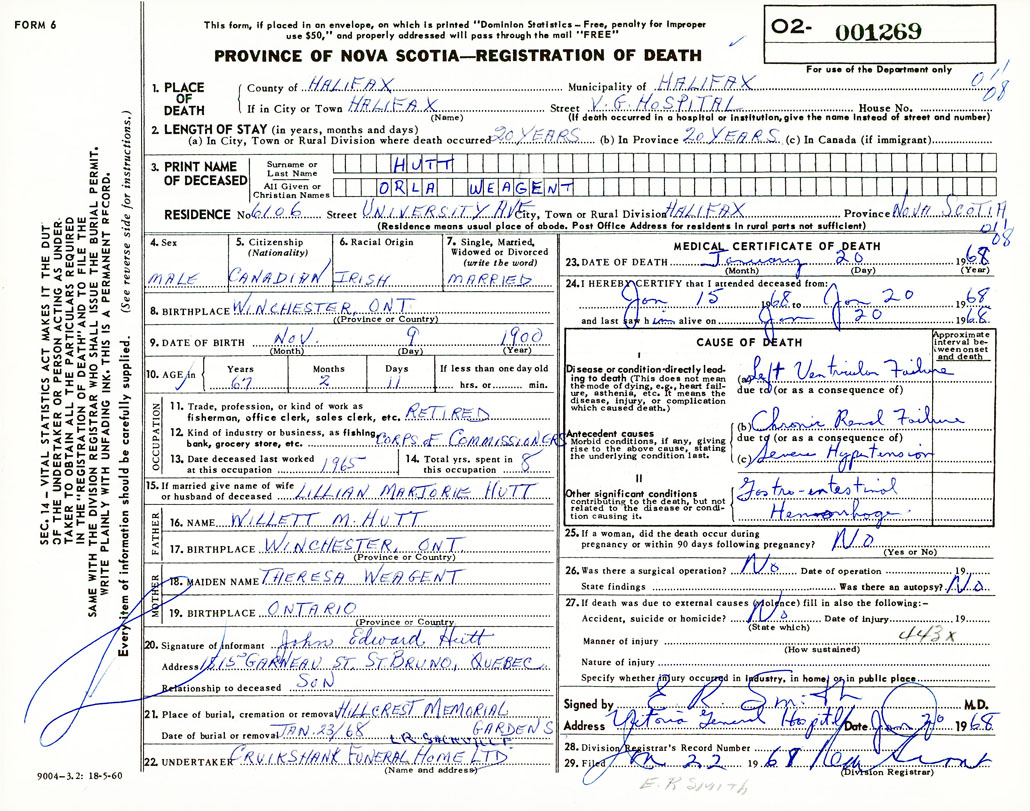 FORM 6
This form, if placed in an envelope, on which is printed "Dominion Statistics – Free, penalty for Improper
use $50," and properly addressed will pass through the mail "FREE"
PROVINCE OF NOVA SCOTIA—REGISTRATION OF DEATH
02- 001269
For use of the Department only
011
08
1. PLACE OF DEATH
County of HALIFAX Municipality of HALIFAX
If in City or Town HALIFAX Street V. G. HOSPITAL House No.
(Name) (If death occurred in a hospital or institution, give the name instead of street and number)
2. LENGTH OF STAY (in years, months and days)
(a) In City, Town or Rural Division where death occurred 20 YEARS (b) In Province 20 YEARS (c) In Canada (if immigrant)
3. PRINT NAME OF DECEASED
Surname or Last Name HUTT
All Given or Christian Names ORLA WEAGENT
RESIDENCE No 6106 Street UNIVERSITY AVE City, Town or Rural Division HALIFAX Province NOVA SCOTIA
(Residence means usual place of abode. Post Office Address for residents in rural parts not sufficient)
011
08
4. Sex
MALE
5. Citizenship
(Nationality)
CANADIAN
6. Racial Origin
IRISH
7. Single, Married,
Widowed or Divorced
(write the word)
MARRIED
8. BIRTHPLACE WINCHESTER, ONT
(Province or Country)
9. DATE OF BIRTH NOV. 9 1900
(Month) (Day) (Year)
10. AGE in Years Months Days If less than one day
67 2 11 hrs. or min.
OCCUPATION
11. Trade, profession, or kind of work as
fisherman, office clerk, sales clerk, etc. RETIRED
12. Kind of industry or business, as fishing,
bank, grocery store, etc. CORPS OF COMMISSIONERS
13. Date deceased last worked
at this occupation 1965
14. Total yrs. spent in
this occupation 8
15. If married give name of wife
or husband of deceased LILLIAN MARJORIE HUTT
FATHER
16. NAME WILLETT M. HUTT
17. BIRTHPLACE WINCHESTER, ONT
(Province or Country)
MOTHER
18. MAIDEN NAME THERESA WEAGENT
19. BIRTHPLACE ONTARIO
(Province or Country)
20. Signature of informant John Edward Hutt
Address GARNEAU ST. ST BRUNO, QUEBEC
Relationship to deceased SON
21. Place of burial, cremation or removal HILLCREST MEMORIAL
GARDENS
Date of burial or removal JAN. 23/68
LR. SACKVILLE
22. UNDERTAKER CRUIKSHANK FUNERAL HOME LTD
(Name and address)
MEDICAL CERTIFICATE OF DEATH
23. DATE OF DEATH January 20 1968
(Month) (Day) (Year)
24. I HEREBY CERTIFY that I attended deceased from:
Jan 15 1968 to Jan 20 1968
and last saw him alive on Jan 20 1968
CAUSE OF DEATH
Approximate interval between onset and death
I
Disease or condition directly leading to death (This does not mean the mode of dying, e.g., heart failure, asthenia, etc. It means the disease, injury, or complication which caused death.)
(a) Left Ventricular Failure
due to (or as a consequence of)
Antecedent causes
Morbid conditions, if any, giving rise to the above cause, stating the underlying condition last.
(b) Chronic Renal Failure
due to (or as a consequence of)
(c) Severe Hypertension
II
Other significant conditions
contributing to the death, but not related to the disease or condition causing it.
Gastro-intestinal
Hemorrhage
25. If a woman, did the death occur during
pregnancy or within 90 days following pregnancy? No
(Yes or No)
26. Was there a surgical operation? No Date of operation 19
State findings Was there an autopsy? No
27. If death was due to external causes (violence) fill in also the following:–
Accident, suicide or homicide? No Date of injury 19
(State which)
443X
Manner of injury
(How sustained)
Nature of injury
Specify whether injury occurred in industry, in home, or in public place
Signed by E. R. Smith M.D.
Address Victoria General Hospital Date Jan 20 1968
28. Division Registrar's Record Number
29. Filed Jan 22 1968
(Division Registrar)
E. R SMITH
SEC. 14 – VITAL STATISTICS ACT MAKES IT THE DUTY
OF THE UNDERTAKER OR PERSON ACTING AS UNDER-
TAKER TO OBTAIN ALL THE PARTICULARS REQUIRED
IN THE "REGISTRATION OF DEATH" AND TO FILE THE
SAME WITH THE DIVISION REGISTRAR WHO SHALL ISSUE THE BURIAL PERMIT.
WRITE PLAINLY WITH UNFADING INK. THIS IS A PERMANENT RECORD.
Every item of information should be carefully supplied. (See reverse side for instructions.)
9004–3.2: 18-5-60